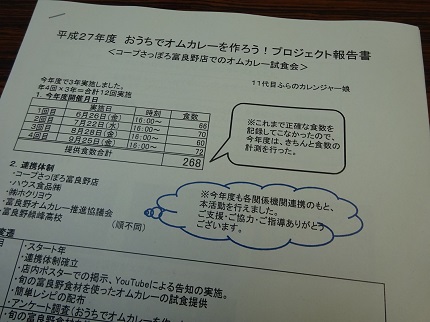 平成27年度 おうちでオムカレーを作ろう！プロジェクト報告書
＜コープさっぽろ富良野店でのオムカレー試食会＞
11代目ふらのカレンジャー娘
今年度で3年実施しました。
年4回×3年＝合計12回実施
1. 今年度開催月日
実施日 時刻 食数
1回目 6月26日(金) 16:00～ 66
2回目 7月22日(水) 16:00～ 70
3回目 8月28日(金) 16:00～ 60
4回目 9月25日(金) 16:00～ 72
提供食数合計 268
※これまで正確な食数を
記録してこなかったので、
今年度は、きちんと食数の
計測を行った。
2. 連携体制
・コープさっぽろ富良野店
・ハウス食品㈱
・㈱ホクリヨウ
・富良野オムカレー推進協議会
・富良野緑峰高校 (順不同)
※今年度も各関係機関連携のもと、
本活動を行えました。
ご支援・ご協力・ご指導ありがとう
ございます。
・スタート年
・連携体制確立
・店内ポスターでの掲示、YouTubeによる告知の実施。
・旬の富良野食材を使ったオムカレーの試食提供
・簡単レシピの配布